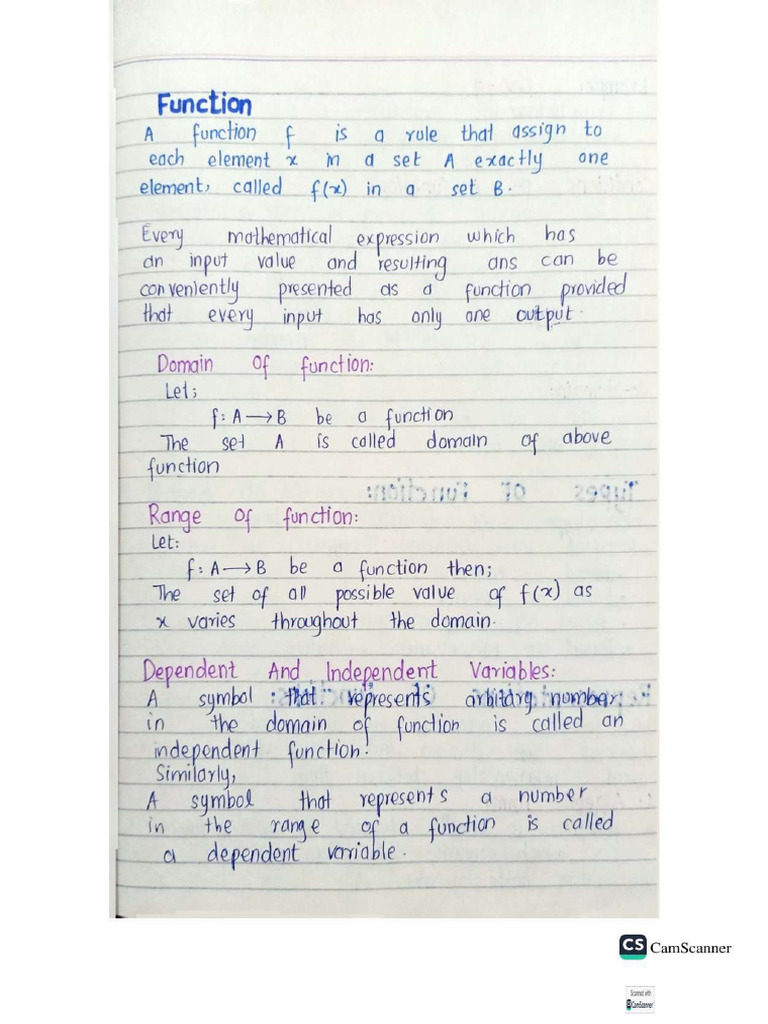 Function
A function f is a rule that assign to
each element x in a set A exactly one
element, called f(x) in a set B.
Every mathematical expression which has
an input value and resulting ans can be
conveniently presented as a function provided
that every input has only one output.
Domain of function:
Let;
f: A → B be a function
The set A is called domain of above
function
Types of Function:
Range of function:
Let:
f: A → B be a function then;
The set of all possible value of f(x) as
x varies throughout the domain.
Dependent And Independent Variables:
A symbol that represents arbitary number
in the domain of function is called an
independent function.
Similarly,
A symbol that represents a number
in the range of a function is called
a dependent variable.
CS CamScanner
Scanned with
CS CamScanner